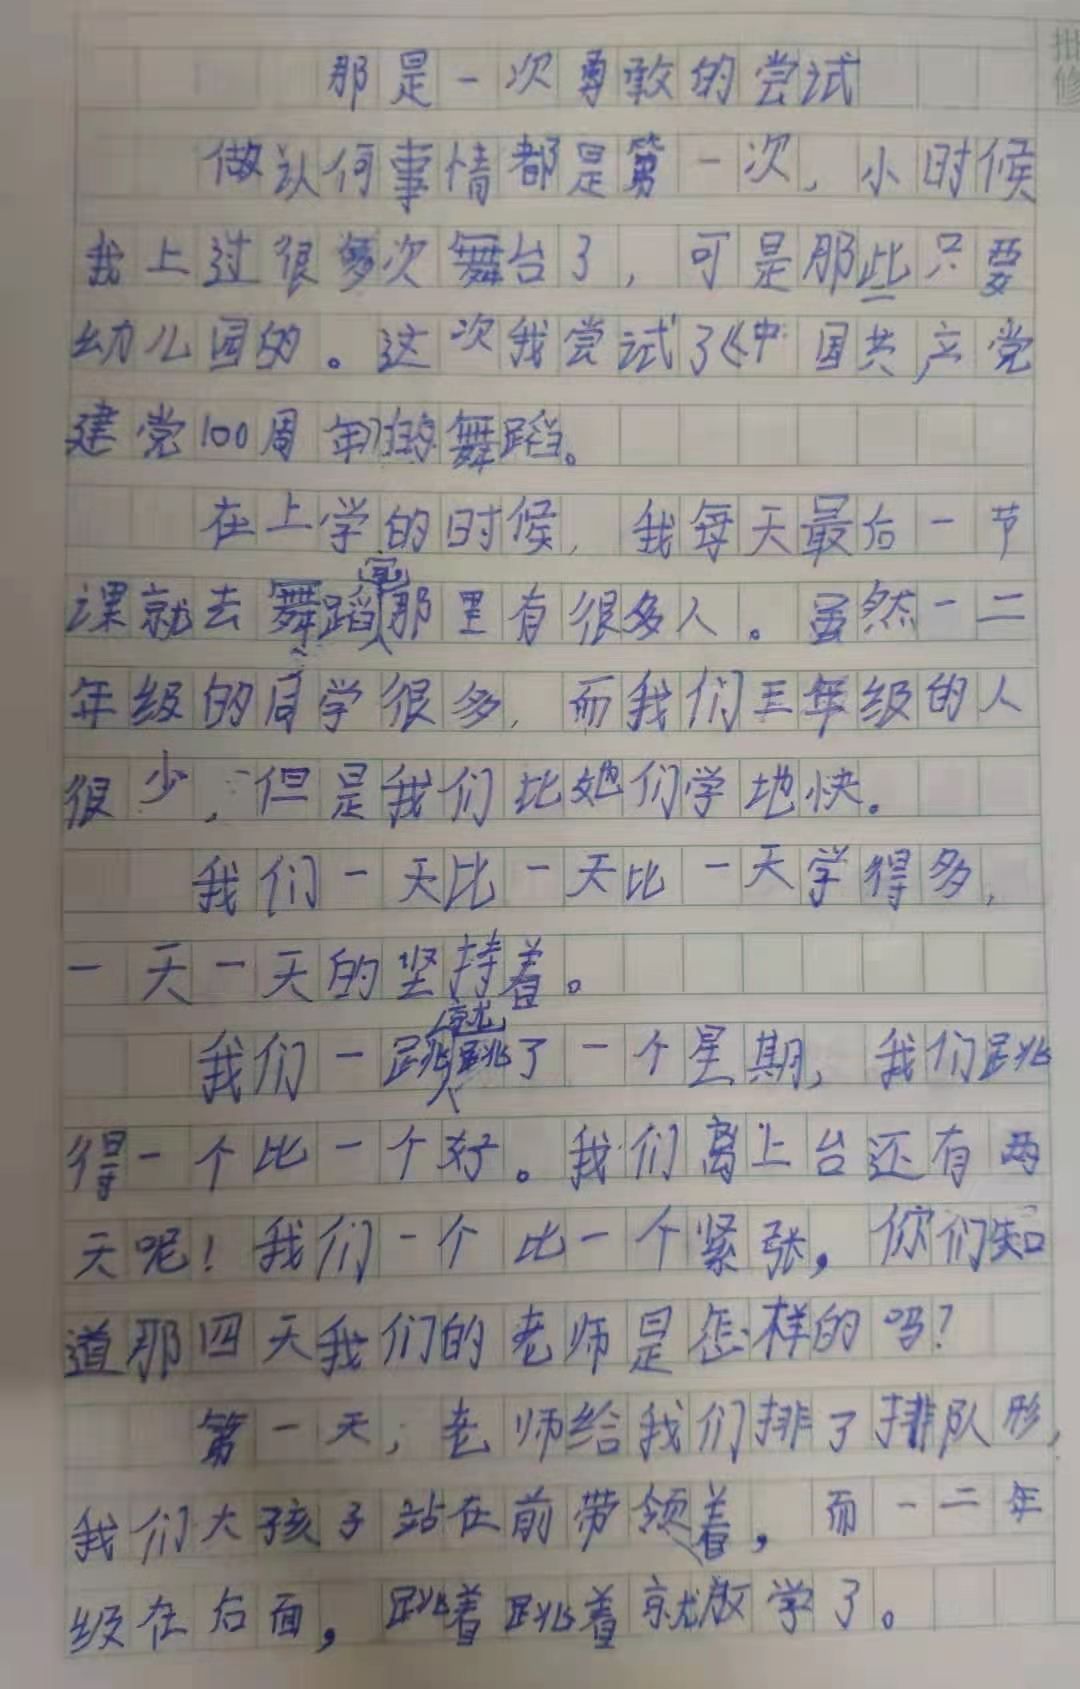 那是一次勇敢的尝试
做认何事情都是第一次，小时候
我上过很多次舞台了，可是那些只要
幼儿园的。这次我尝试了《中国共产党
建党100周年》的舞蹈。
在上学的时候，我每天最后一节
课就去舞蹈室那里有很多人。虽然一二
年级的同学很多，而我们三年级的人
很少，但是我们比她们学地快。
我们一天比一天比一天学得多，
一天一天的坚持着。
我们一跳就跳了一个星期，我们跳
得一个比一个好。我们离上台还有两
天呢！我们一个比一个紧张，你们知
道那四天我们的老师是怎样的吗？
第一天，老师给我们排了排队形，
我们大孩子站在前带领着，而一二年
级在后面，跳着跳着就放学了。
批
修